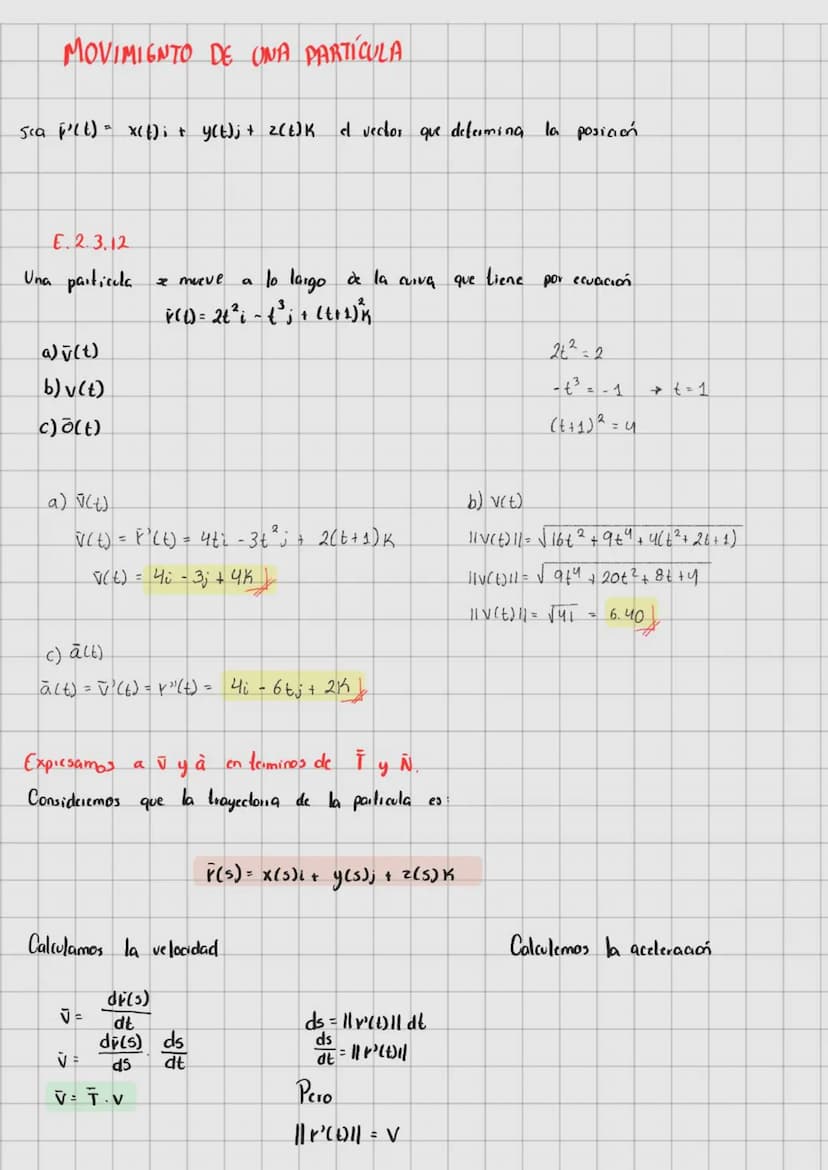 MOVIMIENTO DE UNA PARTÍCULA
Sea r̄'(t) = x(t)i + y(t)j + z(t)K el vector que determina la posición
E.2.3.12
Una particula se mueve a lo largo de la curva que tiene por ecuación
r̄(t) = 2t²i - t³j + (t+1)²K
a) v̄(t)
2t² = 2
b) v(t)
-t³ = -1 → t = 1
c) ā(t)
(t+1)² = 4
a) v̄(t)
b) v(t)
v̄(t) = r̄'(t) = 4ti - 3t²j + 2(t+1)K
||v(t)|| = √16t² + 9t⁴ + 4(t² + 2t + 1)
v̄(t) = 4i - 3j + 4K
||v(t)|| = √9t⁴ + 20t² + 8t + 4
||v(t)|| = √41 = 6.40
c) ā(t)
ā(t) = v̄'(t) = r''(t) = 4i - 6tj + 2K
Expresamos a v̄ y ā en terminos de T̄ y N̄.
Consideremos que la trayectoria de la particula es:
r̄(s) = x(s)i + y(s)j + z(s)K
Calculamos la velocidad
Calculemos la aceleración
v̄ = dr̄(s)/dt
ds = ||r'(t)|| dt
v̄ = dr̄(s)/ds · ds/dt
ds/dt = ||r'(t)||
v̄ = T̄ . v
Pero
||r'(t)|| = v